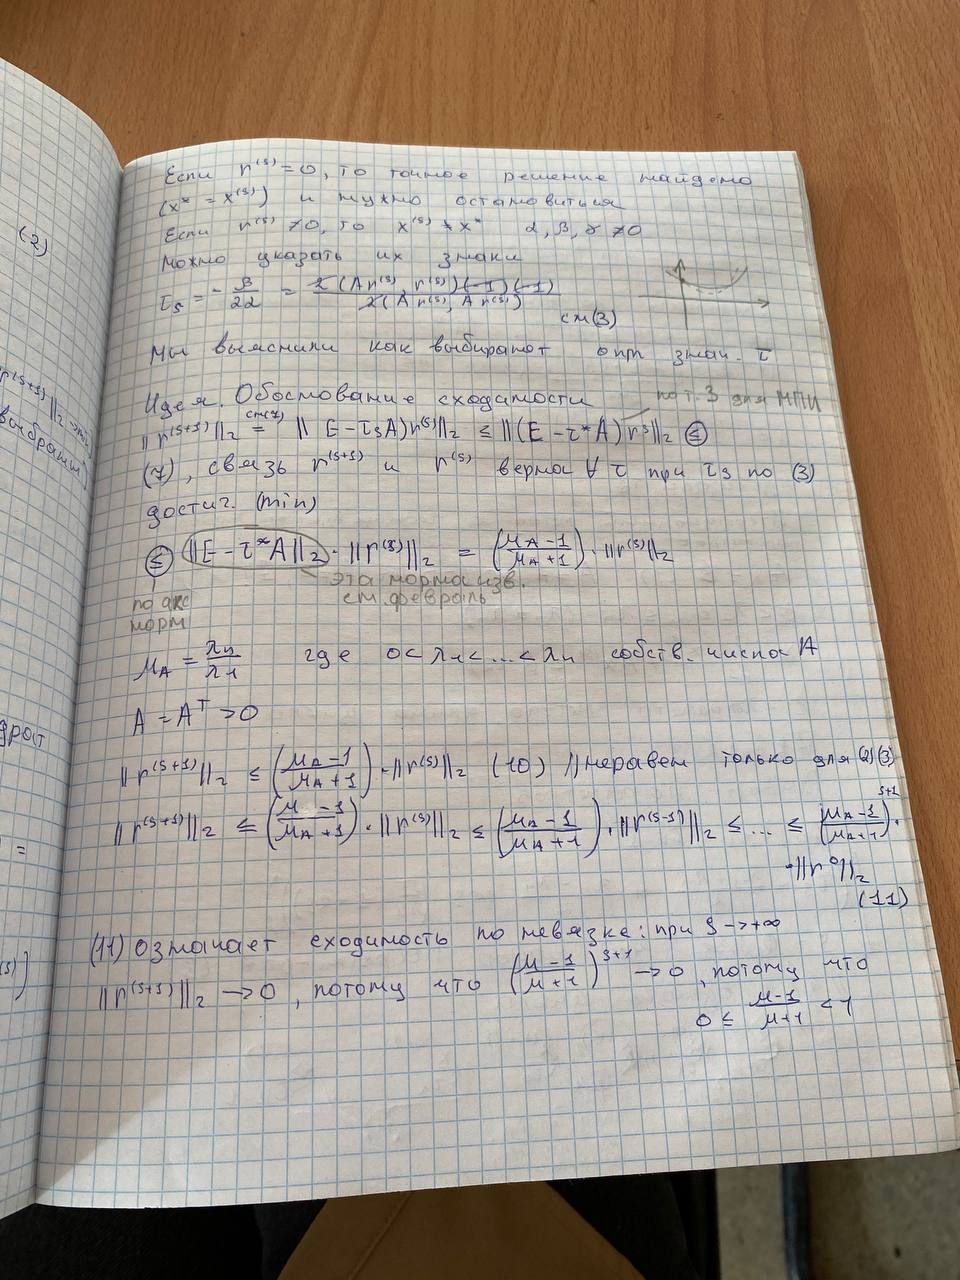 Если r^(s) = 0, то точное решение найдено
(x* = x^(s)) и нужно остановиться
Если r^(s) ≠ 0, то x^(s) ≠ x* α, β, γ ≠ 0
можно указать их знаки
τ_s = -β/2α = 2(Ar^(s), r^(s))(-1)(-1) / 2(Ar^(s), Ar^(s))
см(3)
Мы выяснили как выбирают опт знач. τ
Идея. Обоснование сходимости
по т. 3 для МПИ
||r^(s+1)||_2 =^{см(7)} ||(E - τ_s A)r^(s)||_2 ≤ ||(E - τ*A)r^s||_2 ≤
(7), связь r^(s+1) и r^(s) верна ∀ τ при τ_s по (3)
достиг. (min)
≤ ||E - τ*A||_2 · ||r^(s)||_2 = (μ_A - 1 / μ_A + 1) · ||r^(s)||_2
эта норма изв.
см. февраль
по акс
норм
μ_A = λ_n/λ_1 где 0 < λ_1 < ... < λ_n собств. числа A
A = A^T > 0
||r^(s+1)||_2 ≤ (μ_A - 1 / μ_A + 1) · ||r^(s)||_2 (10) //неравен только для (2)(3)
||r^(s+1)||_2 ≤ (μ - 1 / μ_A + 1) · ||r^(s)||_2 ≤ (μ_A - 1 / μ_A + 1) · ||r^(s-1)||_2 ≤ ... ≤ (μ_A - 1 / μ_A + 1)^{s+1} ·
· ||r^0||_2
(11)
(11) означает сходимость по невязке: при s → +∞
||r^(s+1)||_2 → 0, потому что (μ - 1 / μ + 1)^{s+1} → 0, потому что
0 ≤ μ-1 / μ+1 < 1
(2)